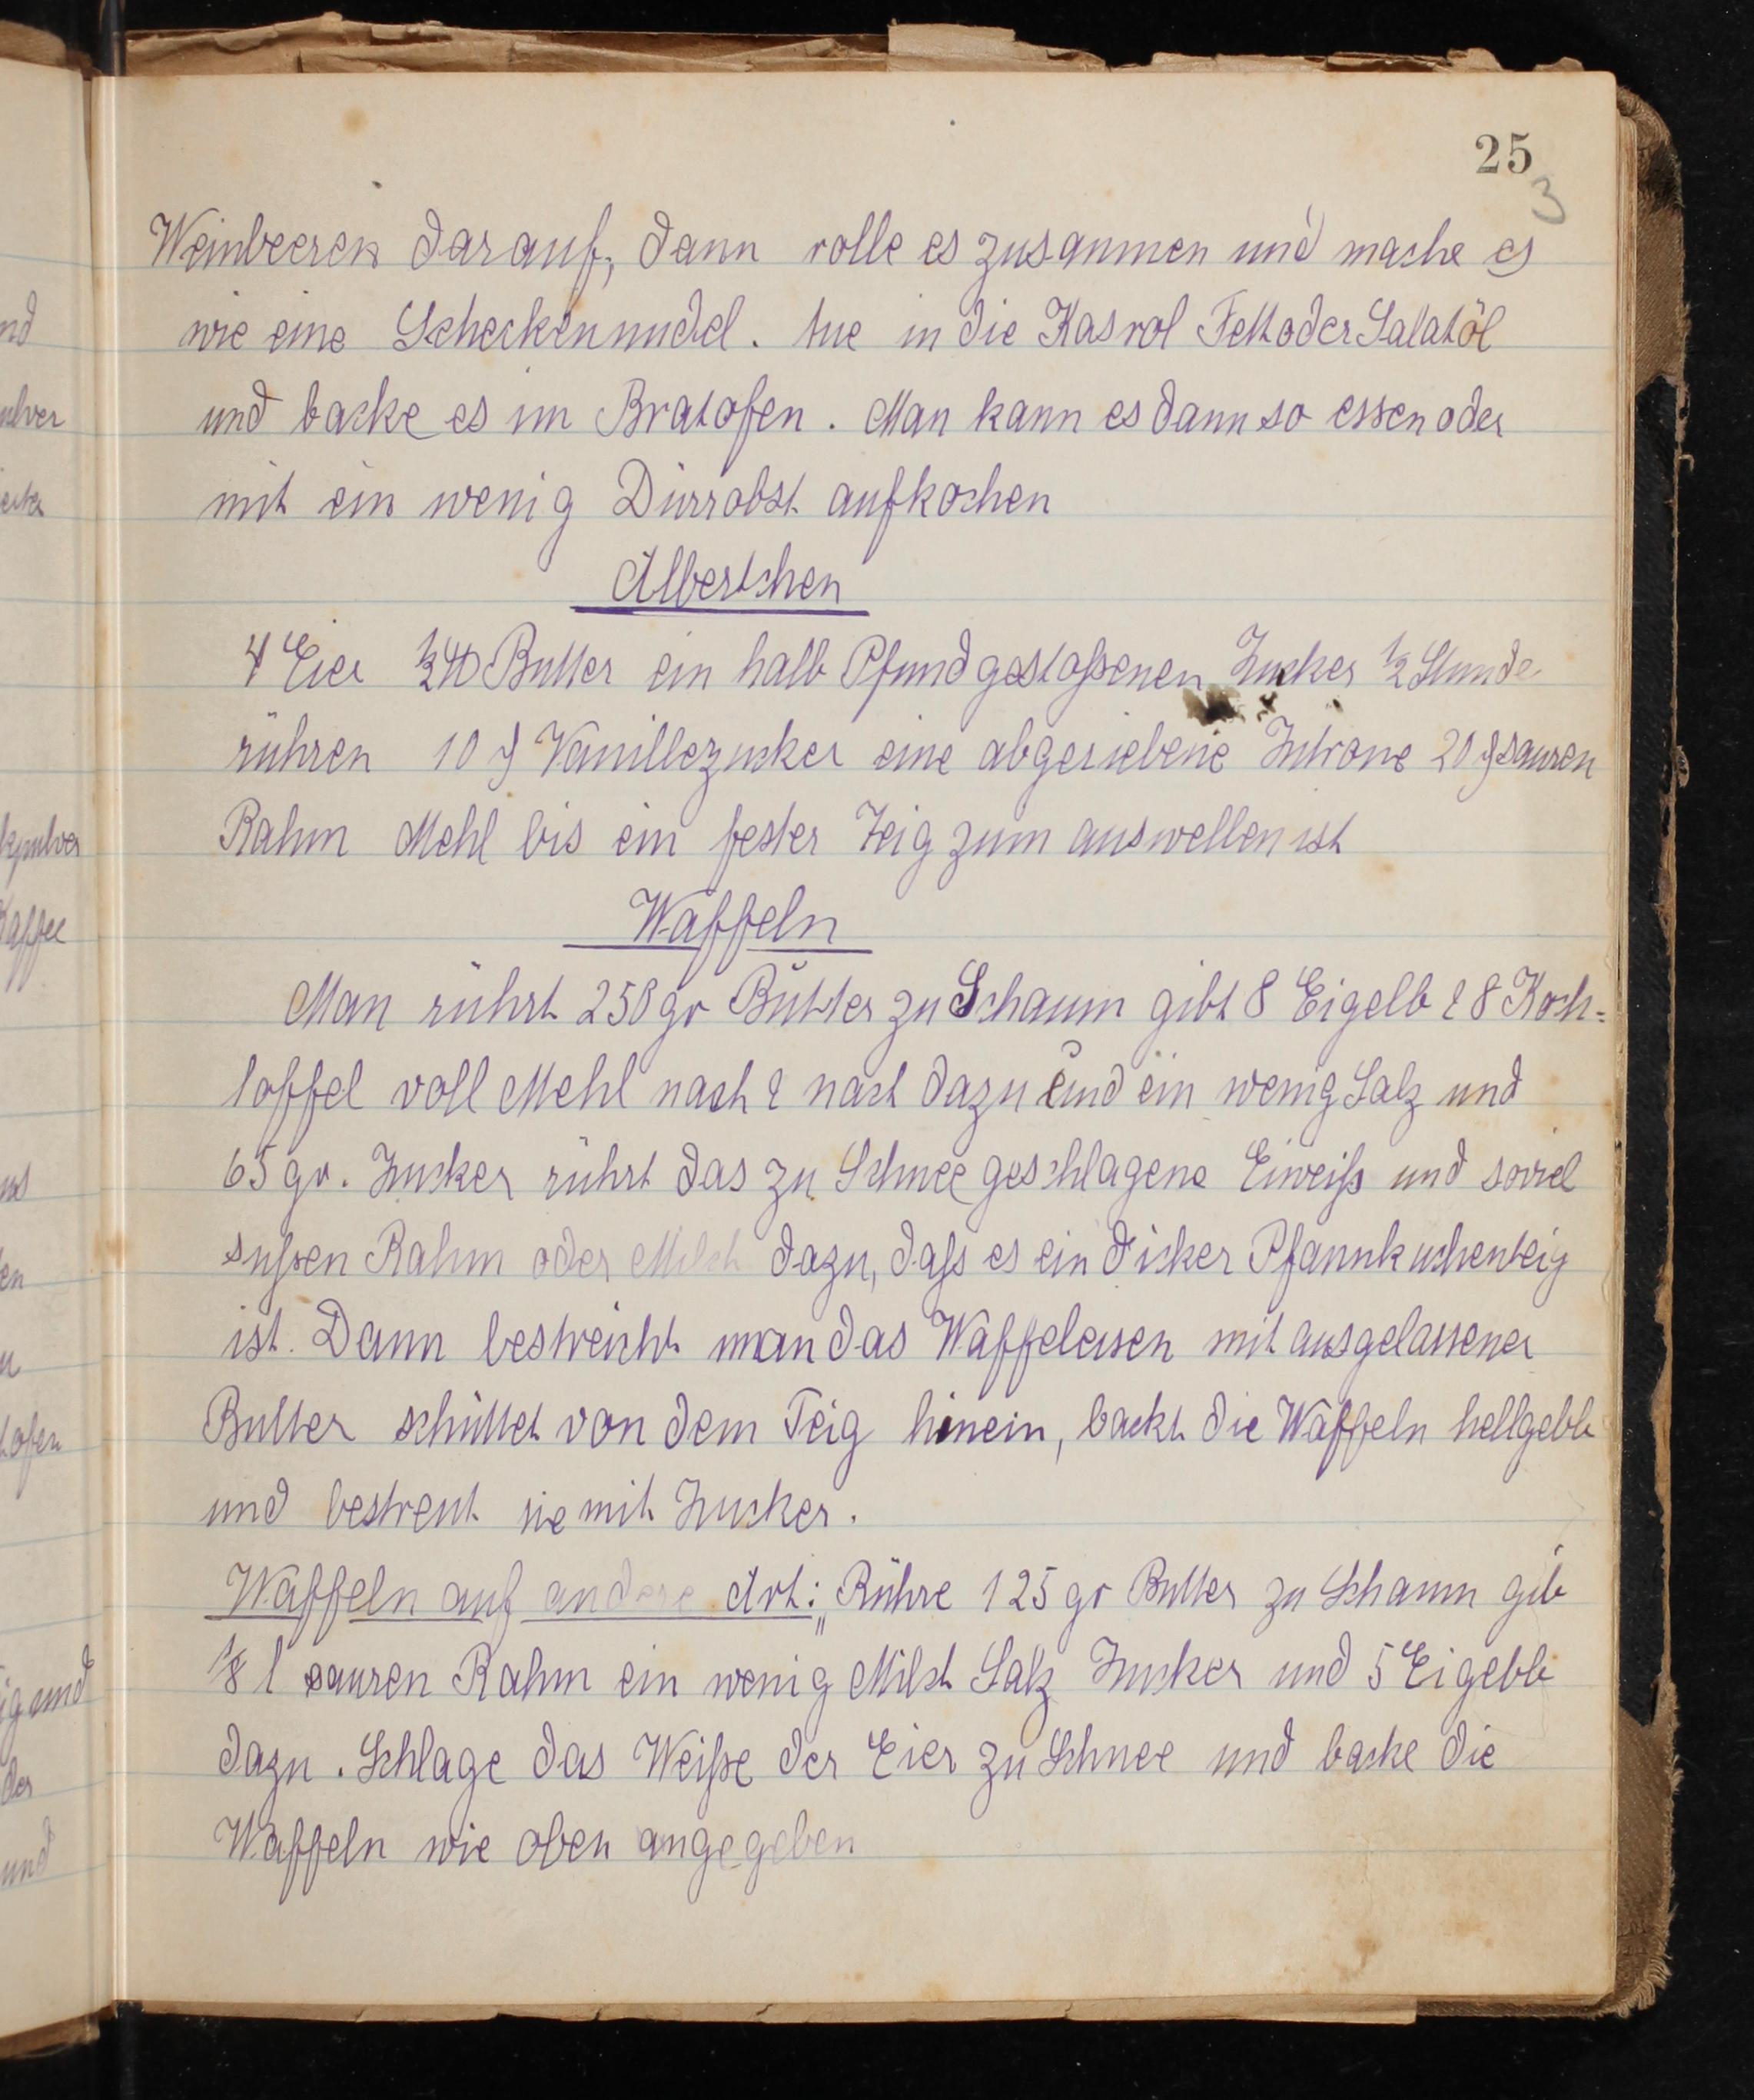 25
3
Weinbeeren darauf, dann rolle es zusammen und mache es
wie eine Scheckennudel. tue in die Kasrol Fett oder Salatöl
und backe es im Bratofen. Man kann es dann so essen oder
mit ein wenig Dürrobst aufkochen
Albertchen
4 Eier ½ ℔ Butter ein halb Pfund gestoßenen Zucker ½ Stunde
rühren 10 ₰ Vanillezucker eine abgeriebene Zitrone 20 ₰ sauren
Rahm Mehl bis ein fester Teig zum auswellen ist
Waffeln
Man rührt 250 gr Butter zu Schaum gibt 8 Eigelb & 8 Koch=
loffel voll Mehl nach & nach dazu und ein wenig Salz und
65 gr. Zucker rührt das zu Schnee geschlagene Eiweiß und soviel
sußen Rahm oder Milch dazu, daß es ein dicker Pfannkuchenteig
ist. Dann bestreicht man das Waffeleisen mit ausgelassener
Butter schüttet von dem Teig hinein, backt die Waffeln hellgelb
und bestreut sie mit Zucker.
Waffeln auf andere Art: „Rühre 125 gr Butter zu Schaum gib
⅛ l sauren Rahm ein wenig Milch Salz Zucker und 5 Eigelb
dazu. Schlage das Weiße der Eier zu Schnee und backe die
Waffeln wie oben angegeben
nd
ulver
kpulver
Kaffee
en
tofen
ig und
der
und